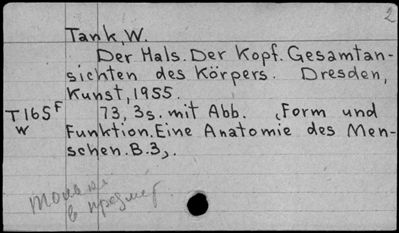 2
Tank, W.
Der Hals. Der Kopf. Gesamtan-
sichten des Körpers. Dresden,
Kunst, 1955.
T165F 73, 3s. mit Abb. (Form und
w Funktion. Eine Anatomie des Men-
schen. B.3).
только
в предмет